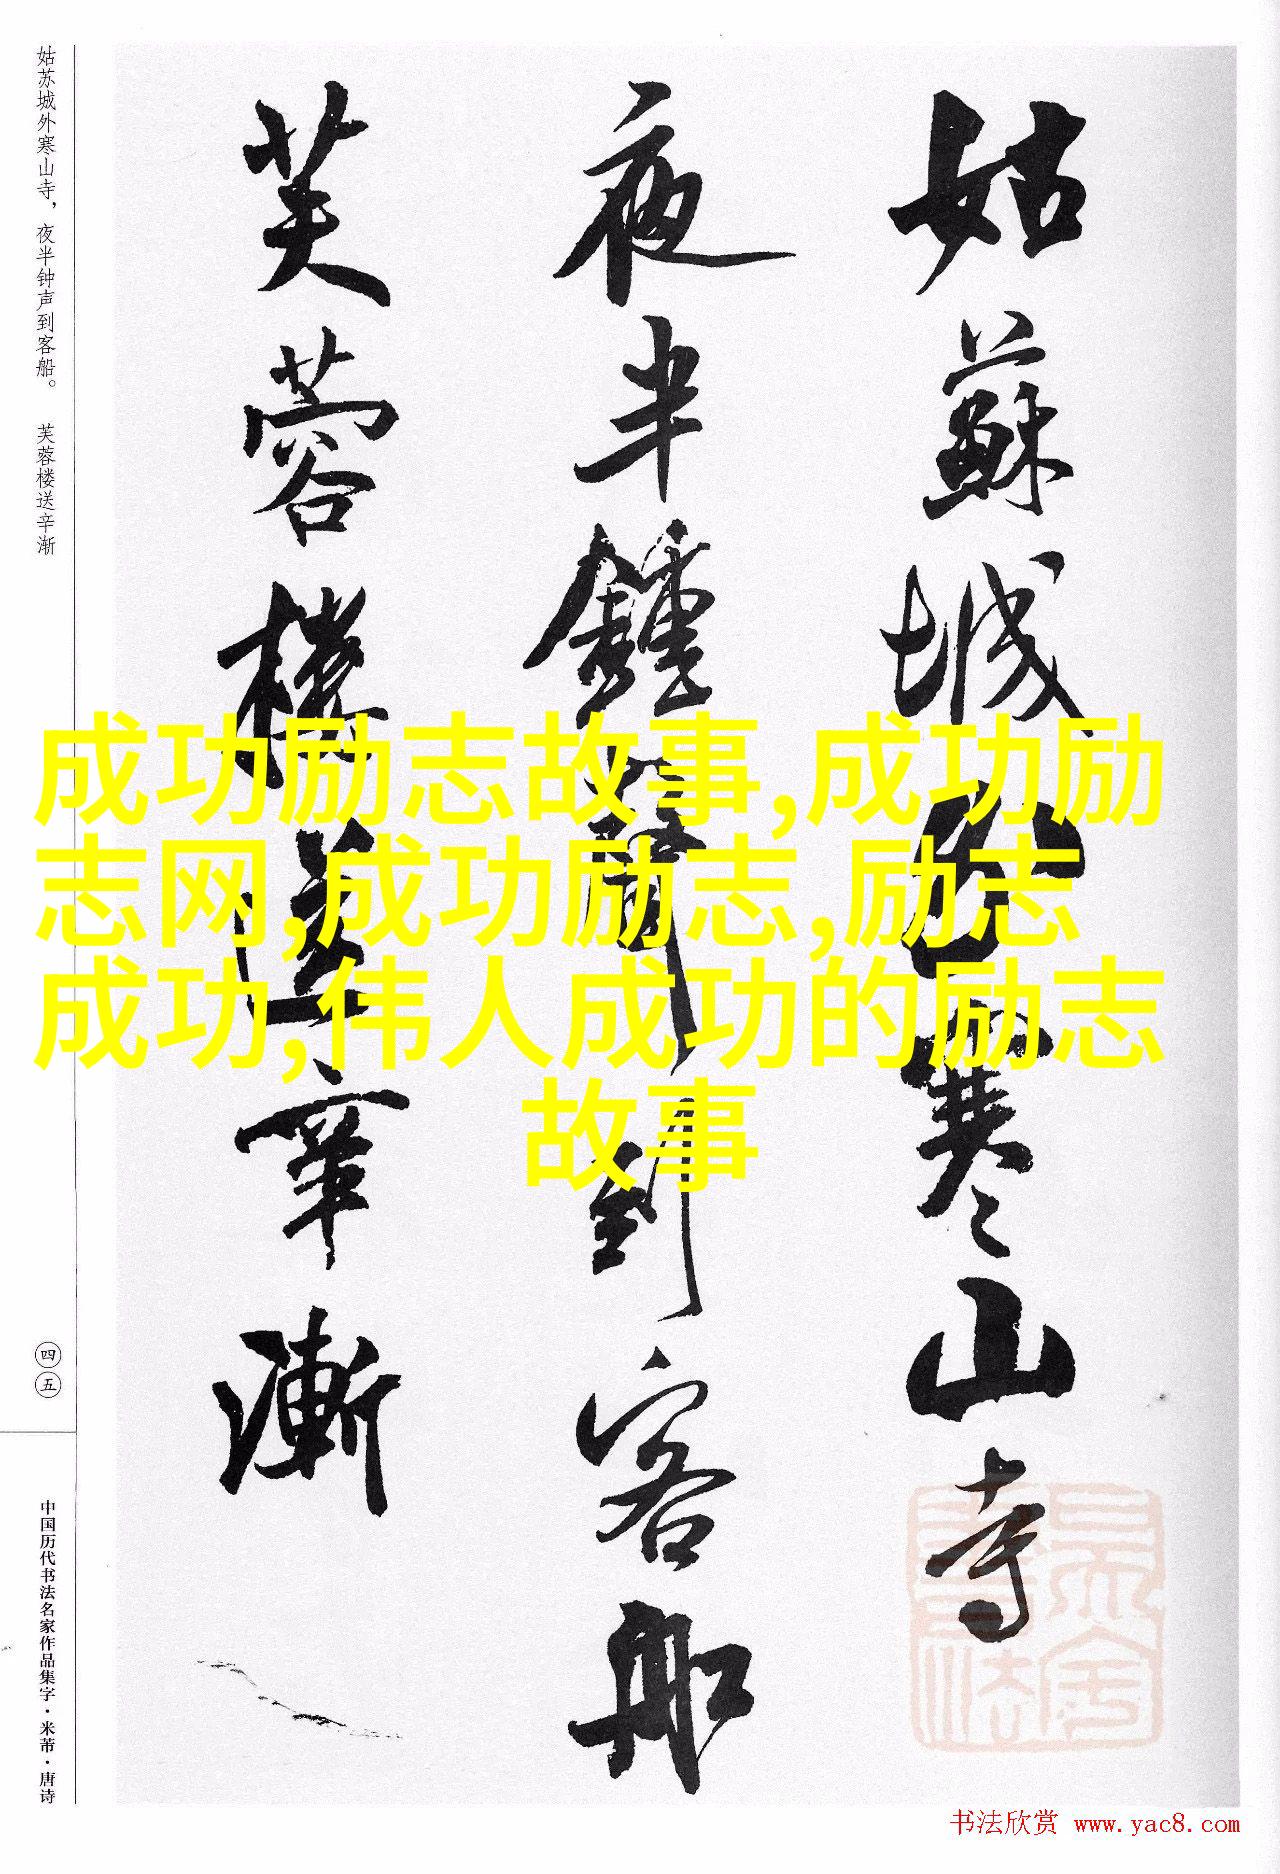 姑蘇城外寒山寺
夜半鍾聲到客船
芙蓉樓送辛漸
姑苏城外寒山寺，夜半钟声到客船。 芙蓉楼送辛渐
四五
中国历代书法名家作品集字·米芾·唐诗
成功励志故事,成功励
志网,成功励志,励志
成功,伟人成功的励志
故事
书法欣赏 www.yac8.com